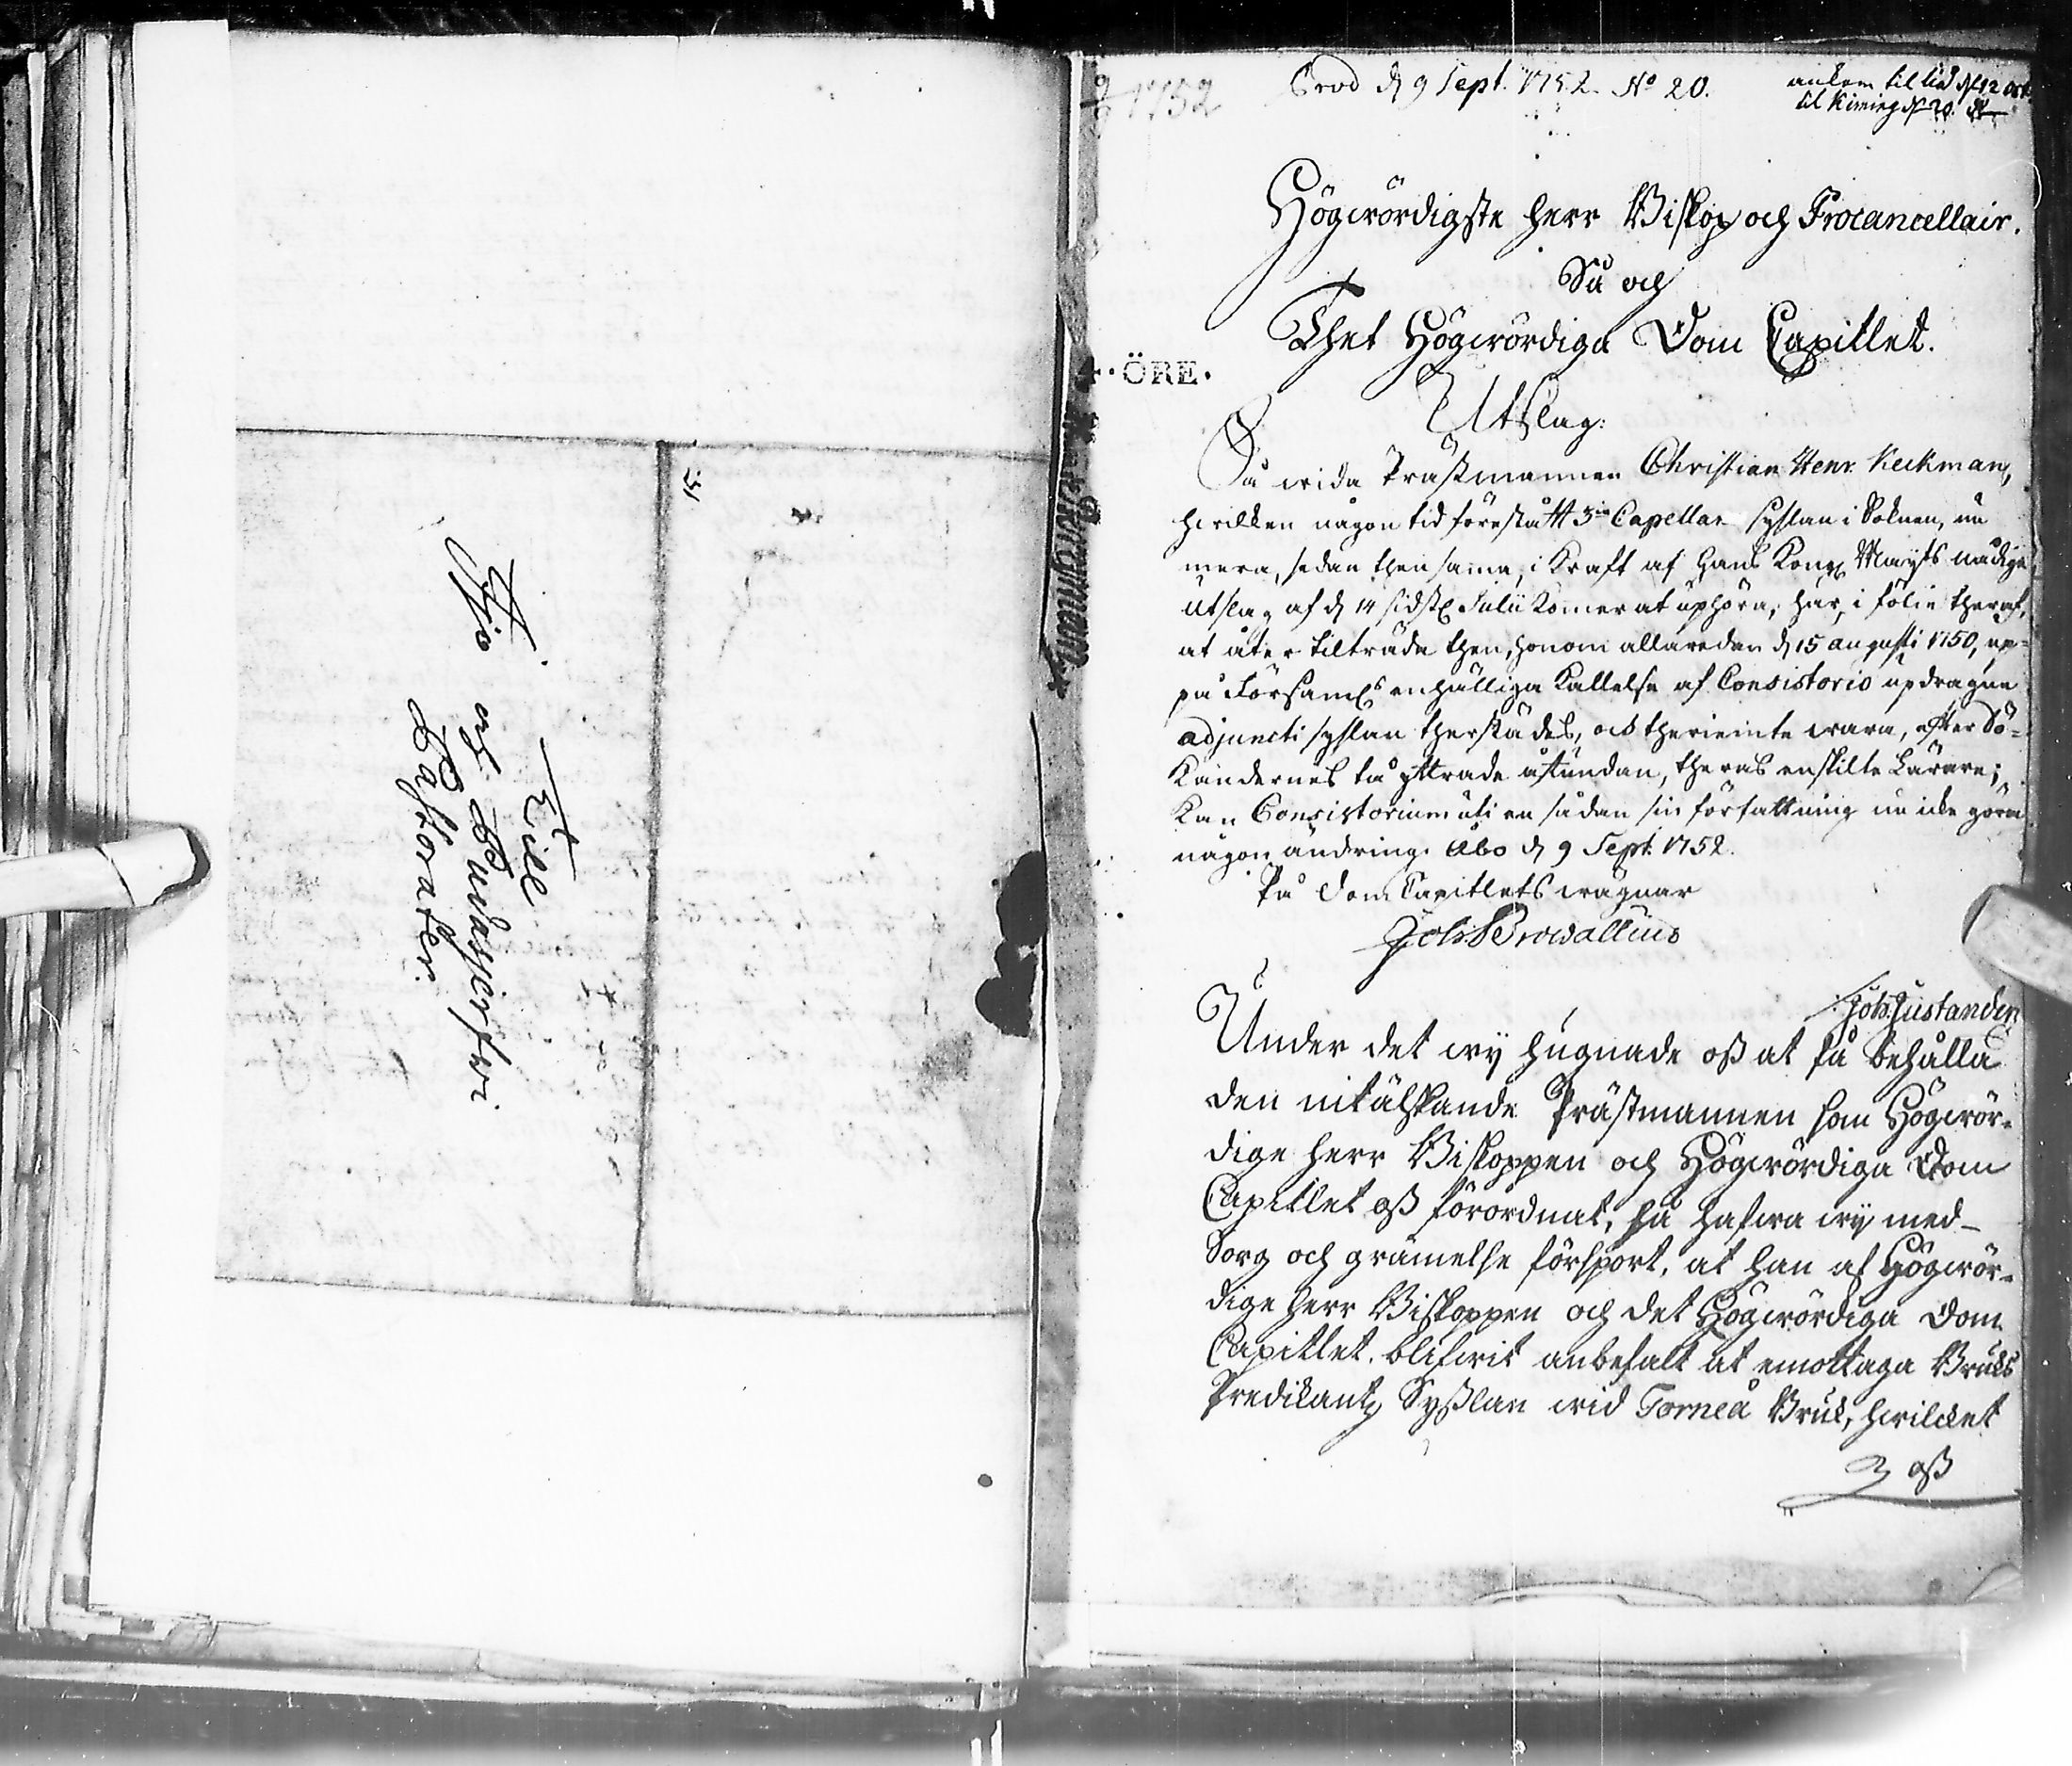 Till
Ijo och Pudasjerfwi
Pastorater.
9/9 1752
Prod d 9 Sept. 1752. No 20.
ankom til Uleå d 12 Oct.
til Kiming d 20.
Högwördigste herr Biskop och Procancellair.
Så och
Thet Högwördiga Dom Capitlet.
4·ÖRE·
Utslag:
Så wida Prästmannen Christian Henr. Keckman,
hwilken någon tid förestått 3die Capellan sysslan i Soknen, nu
mera, sedan then samma, i Kraft af Hans Kongl Mayts nådiga
Utslag af d 14 sidstl Julii komer at uphöra, har, i fölie theraf,
at åter tilträda then, honom allaredan d 15 augusti 1750, up=
på Församls enhälliga kallelse af Consistorio updragne
adjuncti sysslan therstädes, och therjemte wara, efter Sö=
kandernes då yttrade åstundan, theras enskilte Lärare;
Kan Consistorium uti en sådan sin författning nu icke göra
någon ändring. Åbo d 9 Sept. 1752.
På DomCapitlets wägnar
Joh: Browallius
Joh: Justander
Under det wij hugnade oss at få behålla
den nitälskande Prästmannen som Högwör-
dige herr Biskoppen och Högwördiga Dom
Capitlet oss förordnat, så hafwa wij med
Sorg och grämelse försport, at han af Högwör-
dige herr Biskoppen och det Högwördiga Dom
Capitlet blifwit anbefalt at emottaga Bruks
Predikants Sysslan wid Torneå Bruk, hwilcket
oss